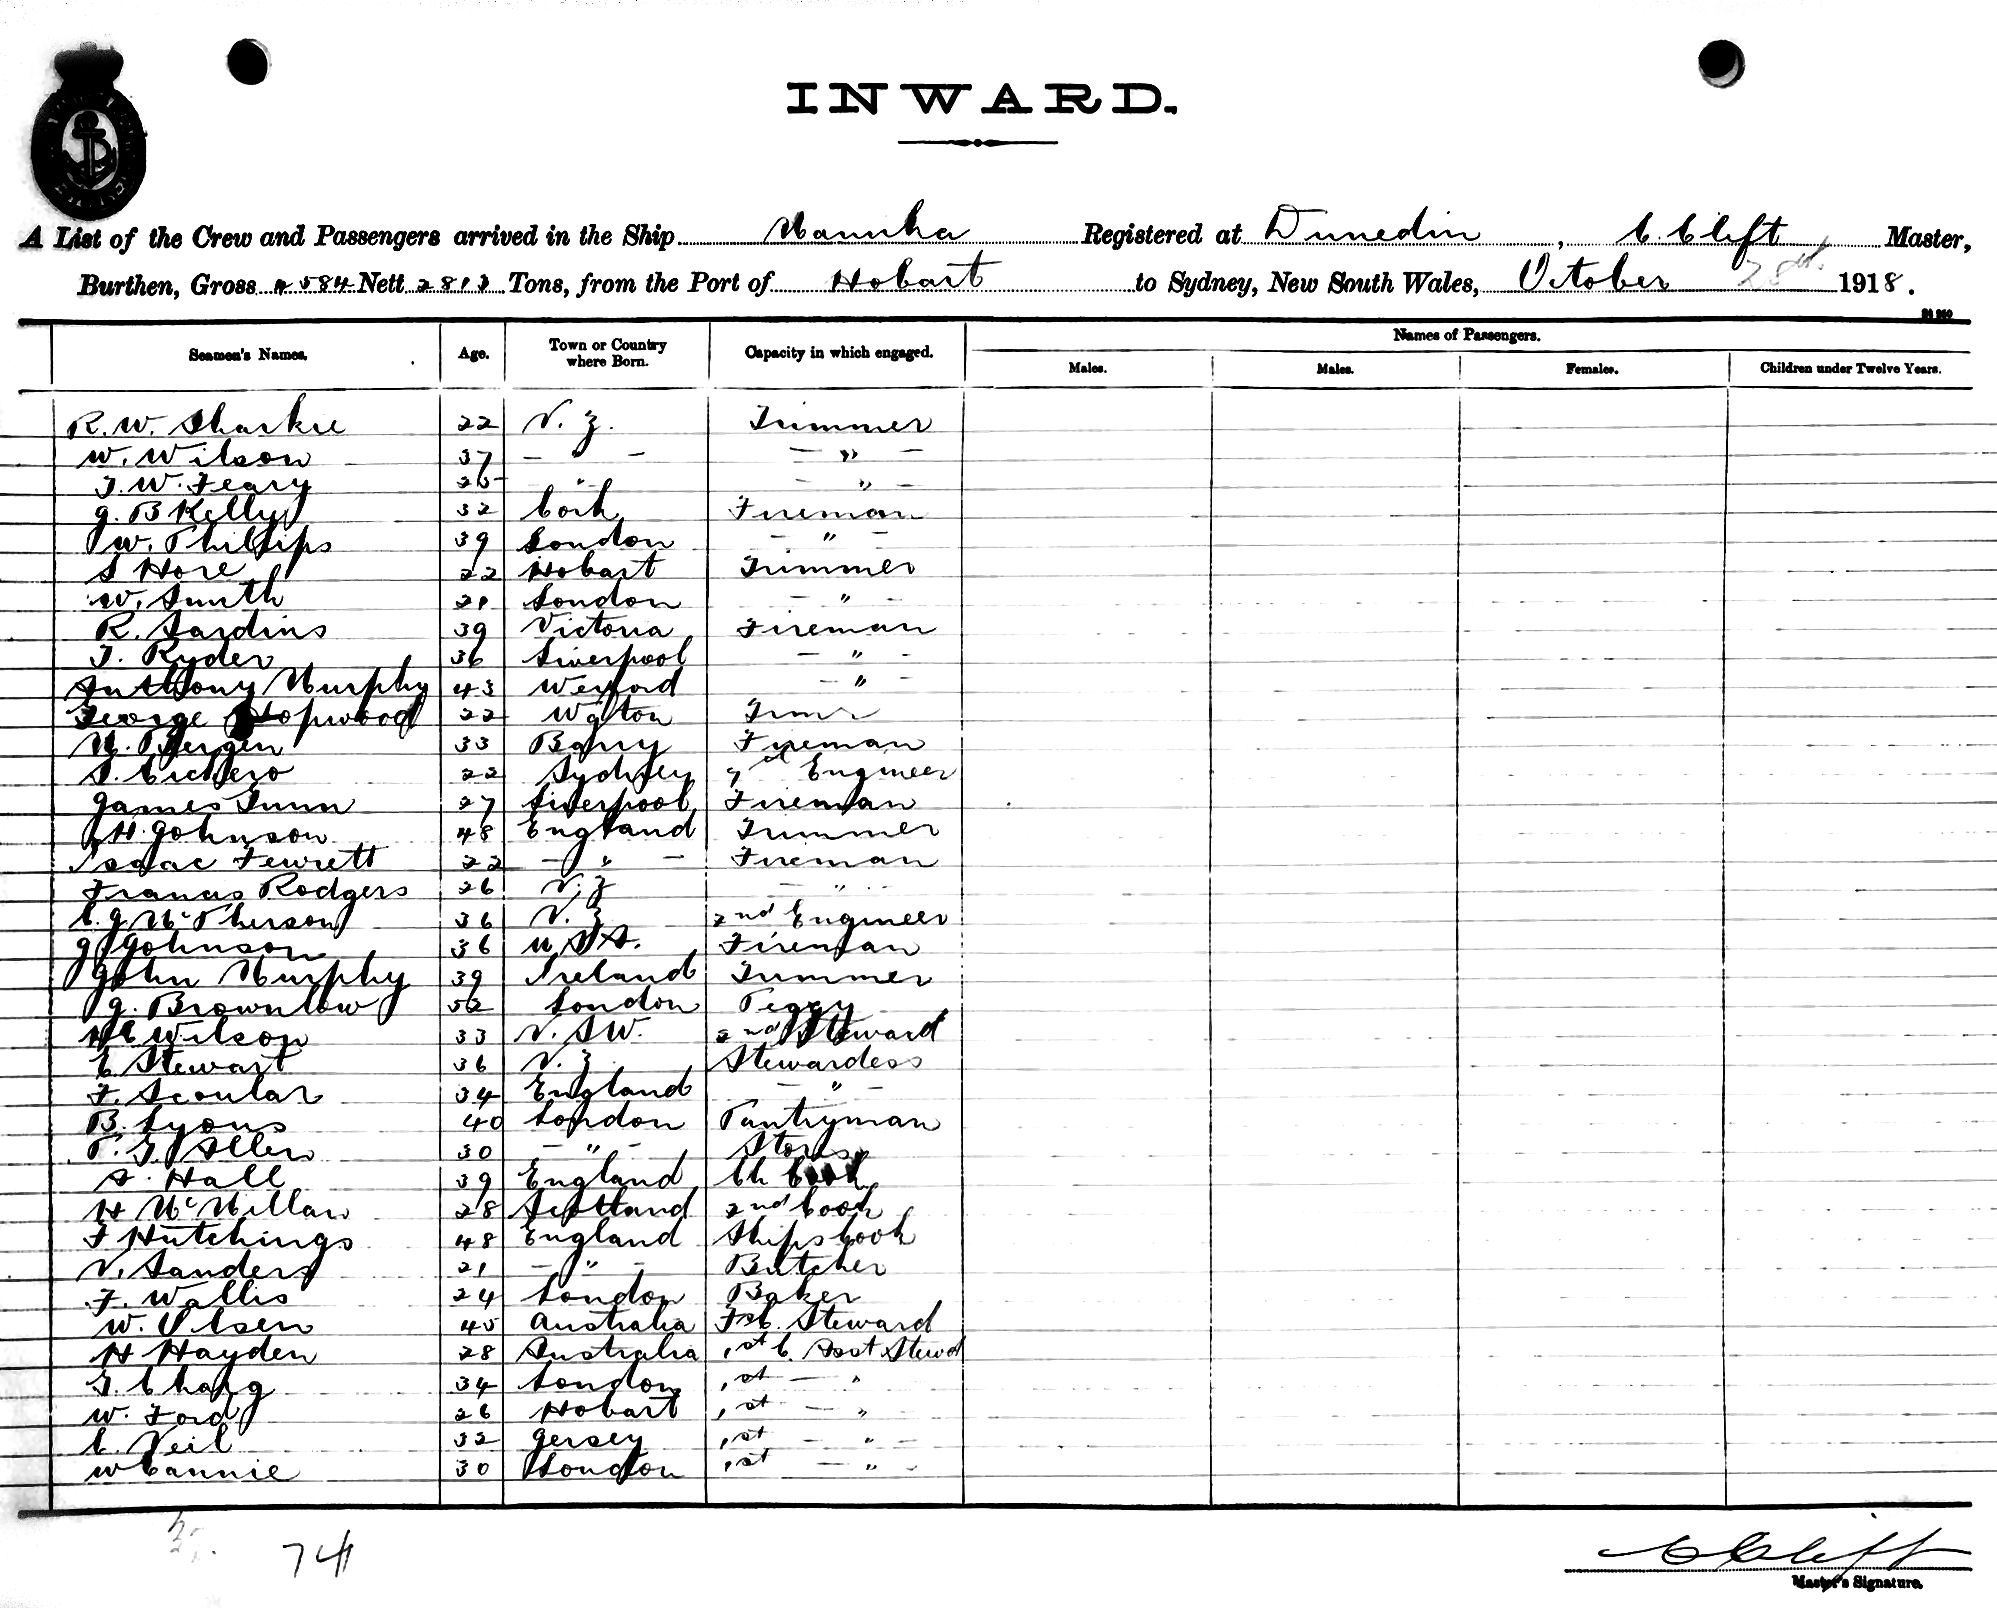 INWARD.
A List of the Crew and Passengers arrived in the Ship Manuka Registered at Dunedin, C. Clift Master,
Burthen, Gross 4584 Nett 2813 Tons, from the Port of Hobart to Sydney, New South Wales, October 28th 1918.
Names of Passengers.
Seamen's Names. Age. Town or Country where Born. Capacity in which engaged. Males. Males. Females. Children under Twelve Years.
R. W. Sharkie 22 N. Z. Trimmer
W. Wilson 37 - " - - " -
T. W. Feary 25 " - " -
J. B Kelly 32 Cork Fireman
W. Phillips 39 London - " -
S Hore 22 Hobart Trimmer
W. Smith 21 London - " -
R. Jardins 39 Victoria Fireman
T. Ryder 36 Liverpool - " -
Anthony Murphy 43 Wexford - " -
George Hopwood 22 Wgton Trimr
M. Bergen 33 Barry Fireman
S. Cichero 22 Sydney Engineer
James Gunn 27 Liverpool Fireman
H. Johnson 48 England Trimmer
Isaac Fewrett 22 - " - Fireman
Francis Rodgers 26 N. Z "
C. J McPherson 36 N. Z 2nd Engineer
J Johnson 36 U.S.A. Fireman
John Murphy 39 Ireland Trimmer
J. Brownlow 52 London Peggy
H C Wilson 33 N. S W. 2nd Steward
C Stewart 36 N. Z. Stewardess
F. Scoular 34 England - " -
B. Lyons 40 London Pantryman
P. G. Allen 30 - " - Stores
A. Hall 39 England Ch Cook
H McMillan 28 Scotland 2nd Cook
F Hutchings 48 England Ships Cook
N. Sanders 21 - " - Butcher
F. Wallis 24 London Baker
W. Olsen 45 Australia F. C. Steward
H Hayden 28 Australia 1st C. Asst Stewd
G. Chagg 34 London 1st - "
W. Ford 26 Hobart 1st - "
C. Veil 32 Jersey 1st - " -
W Cannie 30 London 1st - " -
74
C Clift
Master's Signature.